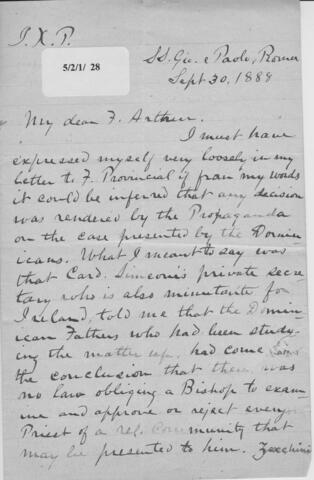 J. X. P.
5/2/1/ 28
SS. Gio. e Paolo, Rome
Sept 30, 1888
My dear F. Arthur.
I must have
expressed myself very loosely in my
letter to F. Provincial if from my words
it could be inferred that any decision
was rendered by the Propaganda
on the case presented by the Domin-
icans. What I meant to say was
that Card. Simeoni's private secre
tary who is also minutante for
Ireland, told me that the Domin-
ican Fathers who had been study-
ing the matter up, had come
the conclusion that there was
no law obliging a Bishop to exam-
ine and approve or reject every
Priest of a rel. Community that
may be presented to him. Zecchini